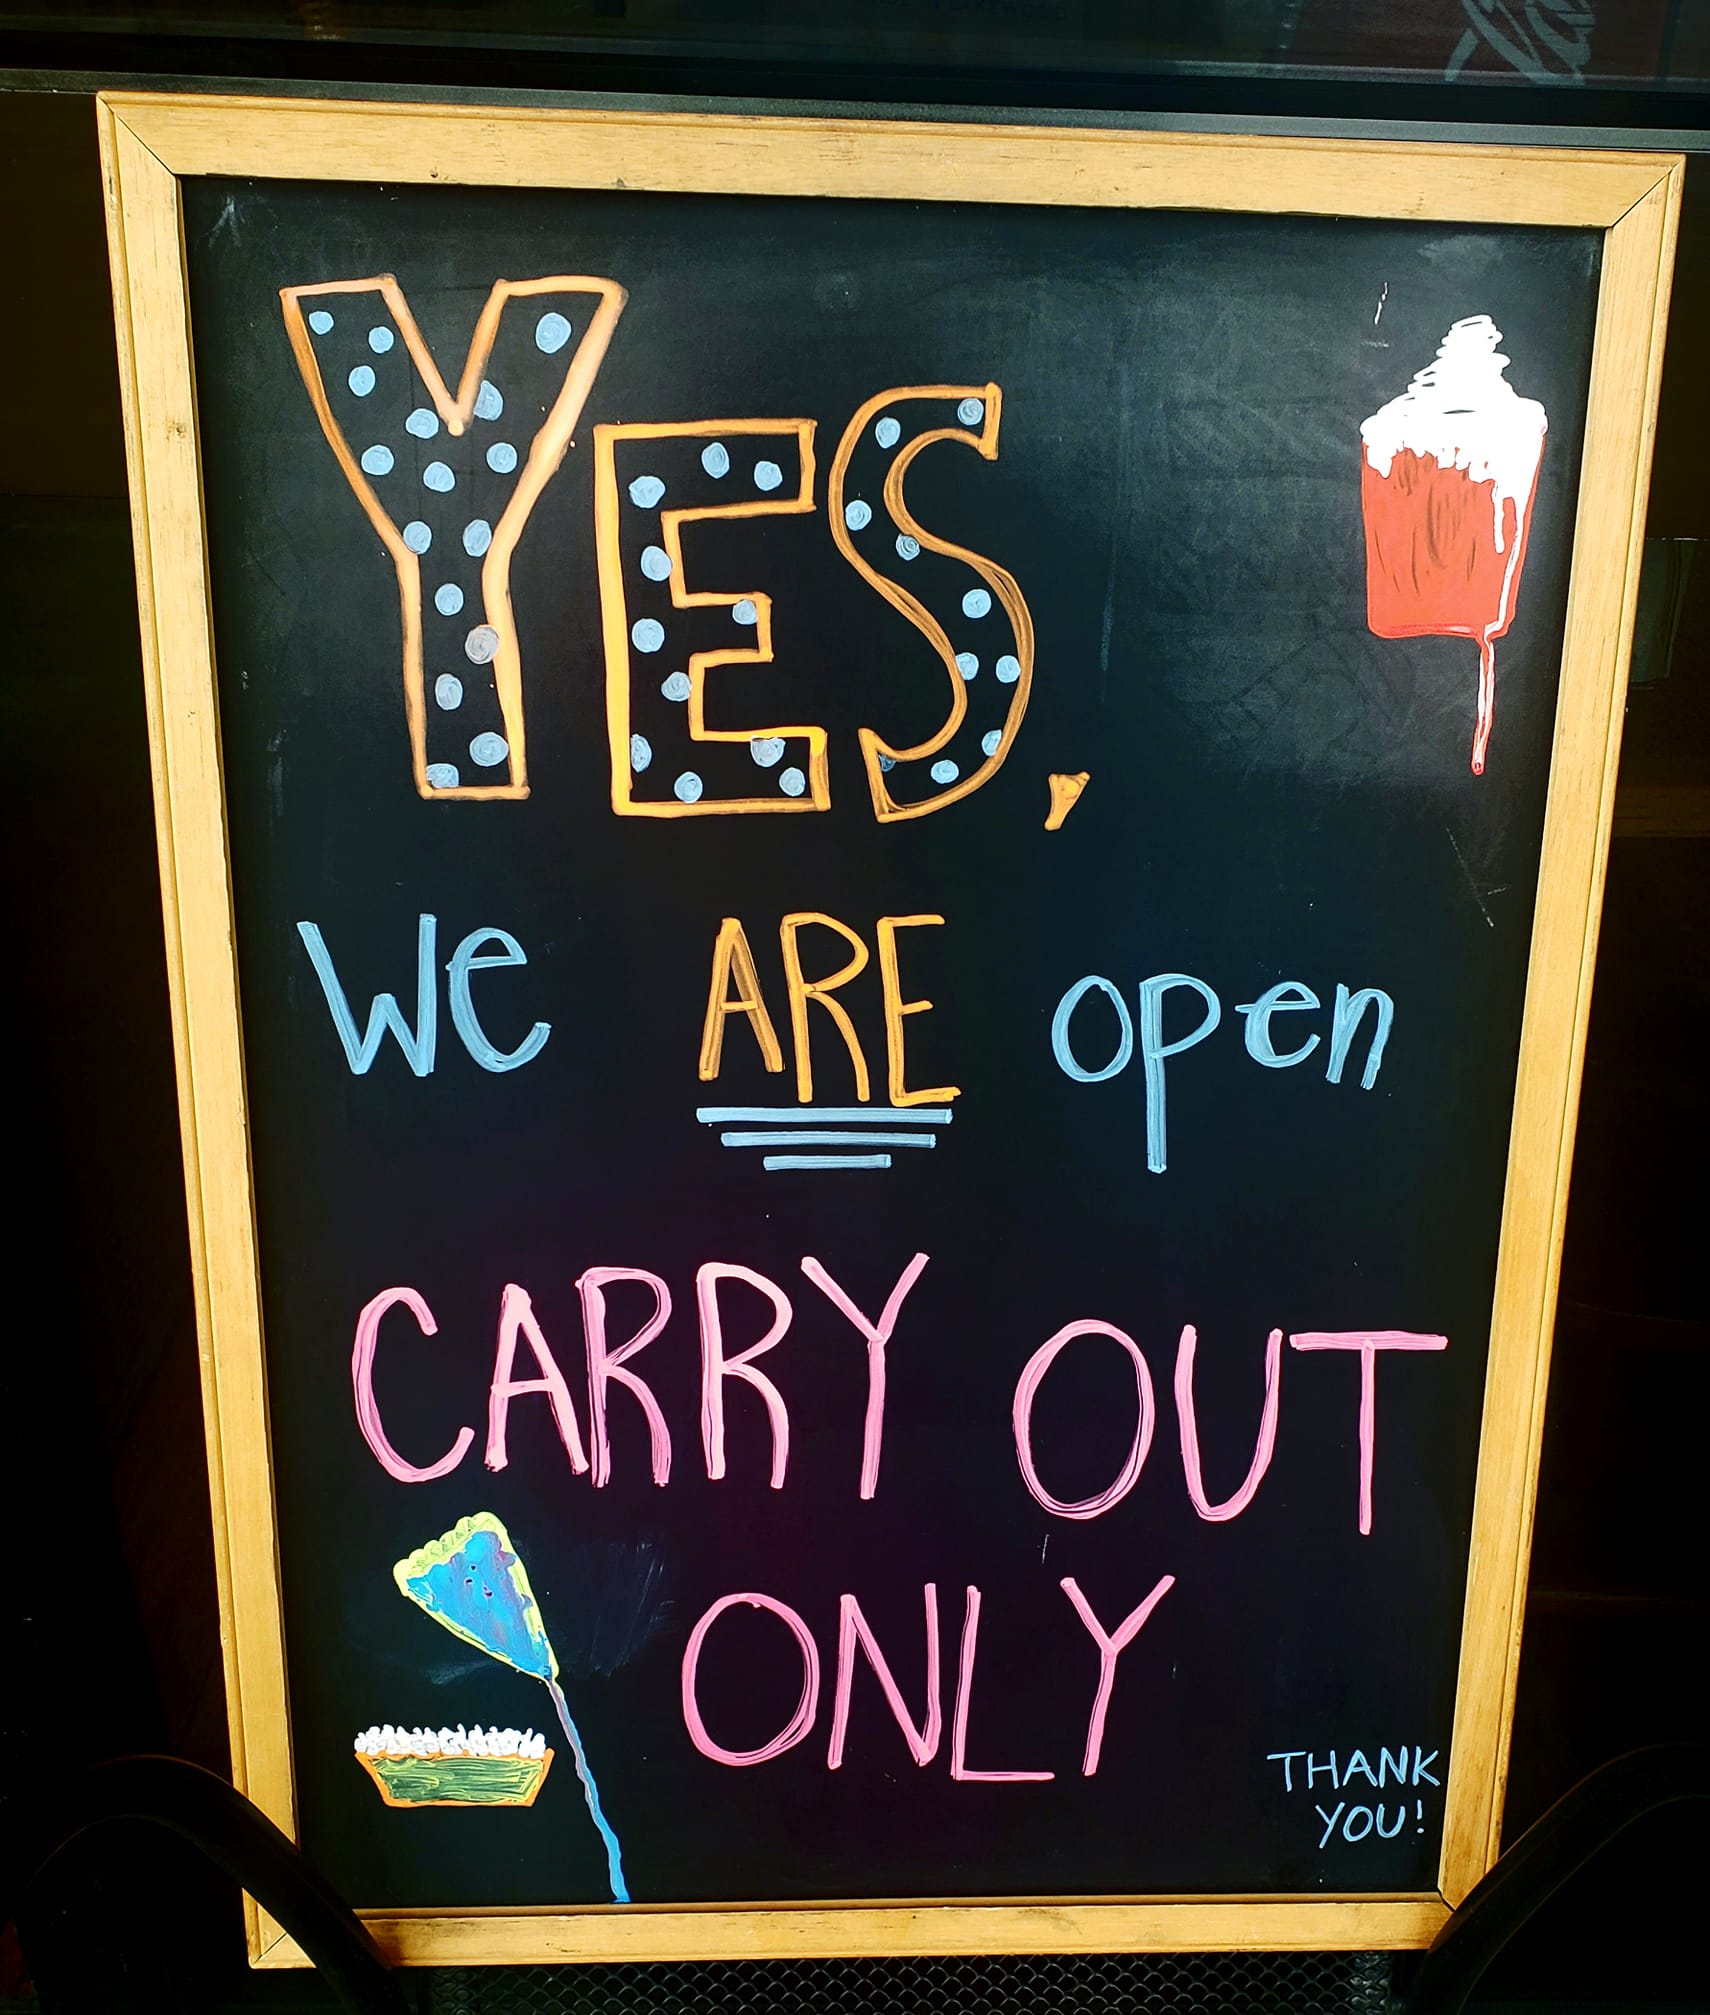 YES,
we ARE open
CARRY OUT
ONLY
THANK
YOU!